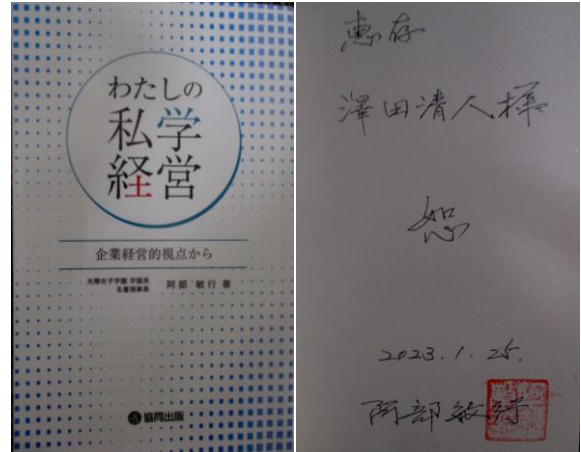 わたしの
私学
経営
企業経営的視点から
光華女子学園 学園長
名誉理事長
阿部 敏行 著
協同出版
恵存
澤田清人様
恕
2023.1.25.
阿部敏行